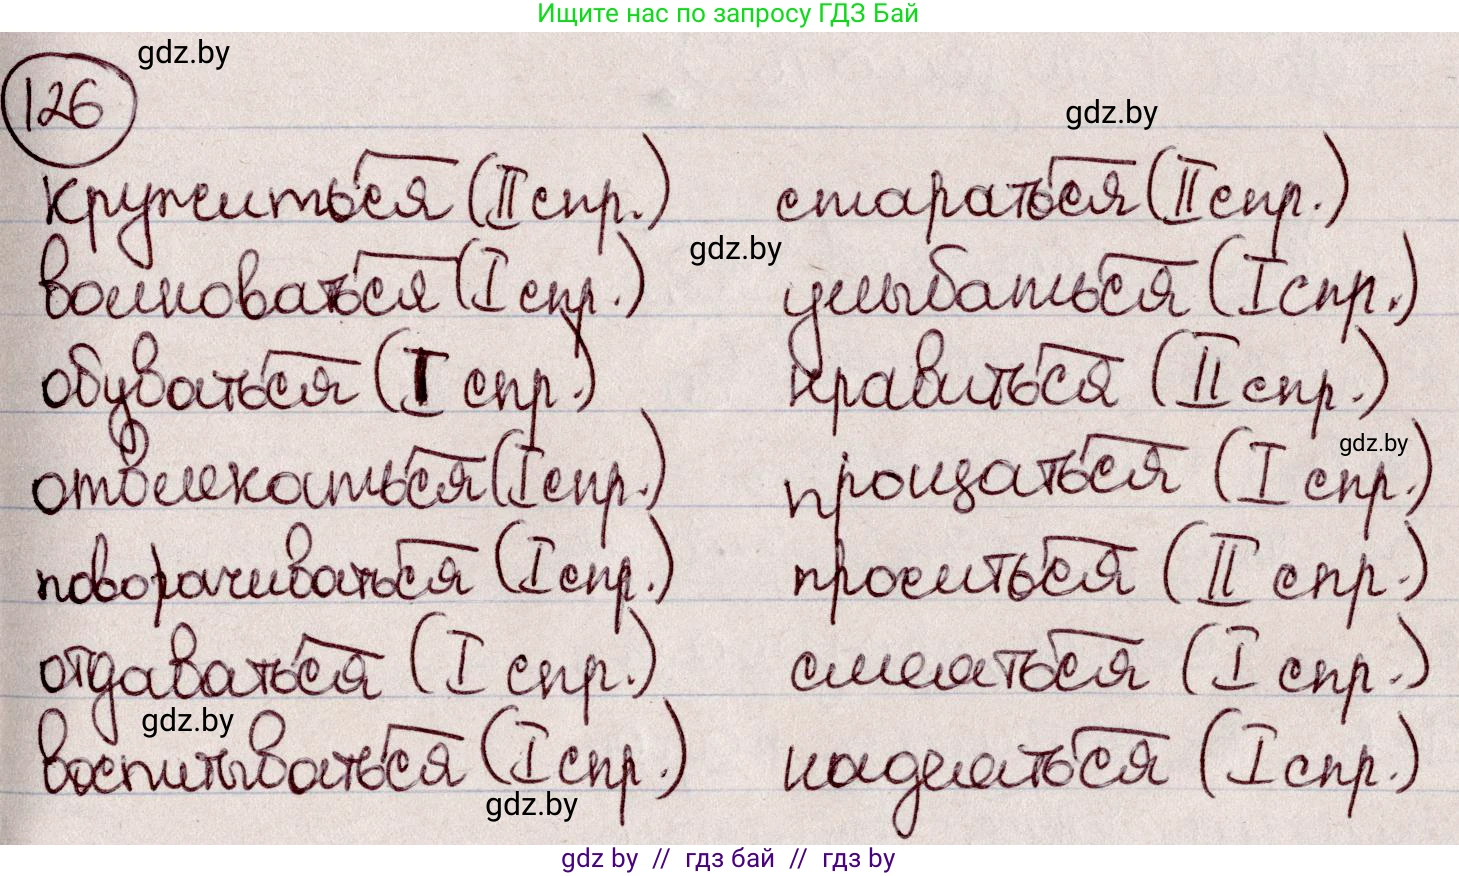 Ищите нас по запросу ГДЗ Бай
gdz.by
126
gdz.by
кружиться (II спр.) стараться (II спр.)
gdz.by
волноваться (I спр.) улыбаться (I спр.)
обуваться (I спр.) нравиться (II спр.)
gdz.by
отвлекаться (I спр.) прощаться (I спр.)
поворачиваться (I спр.) проситься (II спр.)
отдаваться (I спр.) смеяться (I спр.)
gdz.by
воспитываться (I спр.) надеяться (I спр.)
gdz.by
gdz by // гдз бай // гдз by